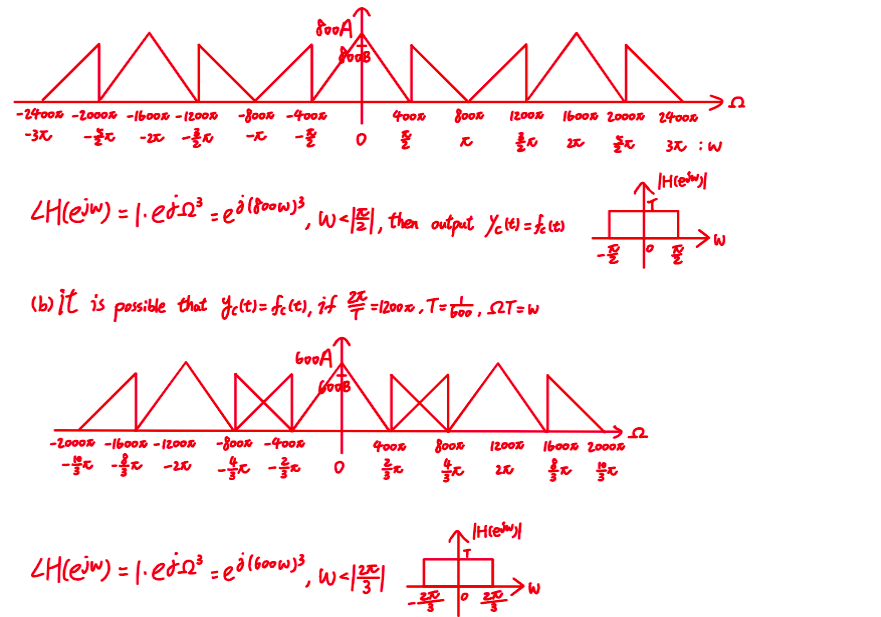 800A
800B
Ω
-2400π -2000π -1600π -1200π -800π -400π 400π 800π 1200π 1600π 2000π 2400π
-3π -5/2π -2π -3/2π -π -π/2 0 π/2 π 3/2π 2π 5/2π 3π : w
∠H(e^jw) = 1·e^jΩ³ = e^j(800w)³, w<|π/2|, then output y_c(t)=f_c(t)
|H(e^jw)|
T
w
-π/2 0 π/2
(b) it is possible that y_c(t)=f_c(t), if 2π/T=1200π, T=1/600, ΩT=w
600A
600B
Ω
-2000π -1600π -1200π -800π -400π 400π 800π 1200π 1600π 2000π
-10/3π -8/3π -2π -4/3π -2/3π 0 2/3π 4/3π 2π 8/3π 10/3π
∠H(e^jw) = 1·e^jΩ³ = e^j(600w)³, w<|2π/3|
|H(e^jw)|
T
w
-2π/3 0 2π/3